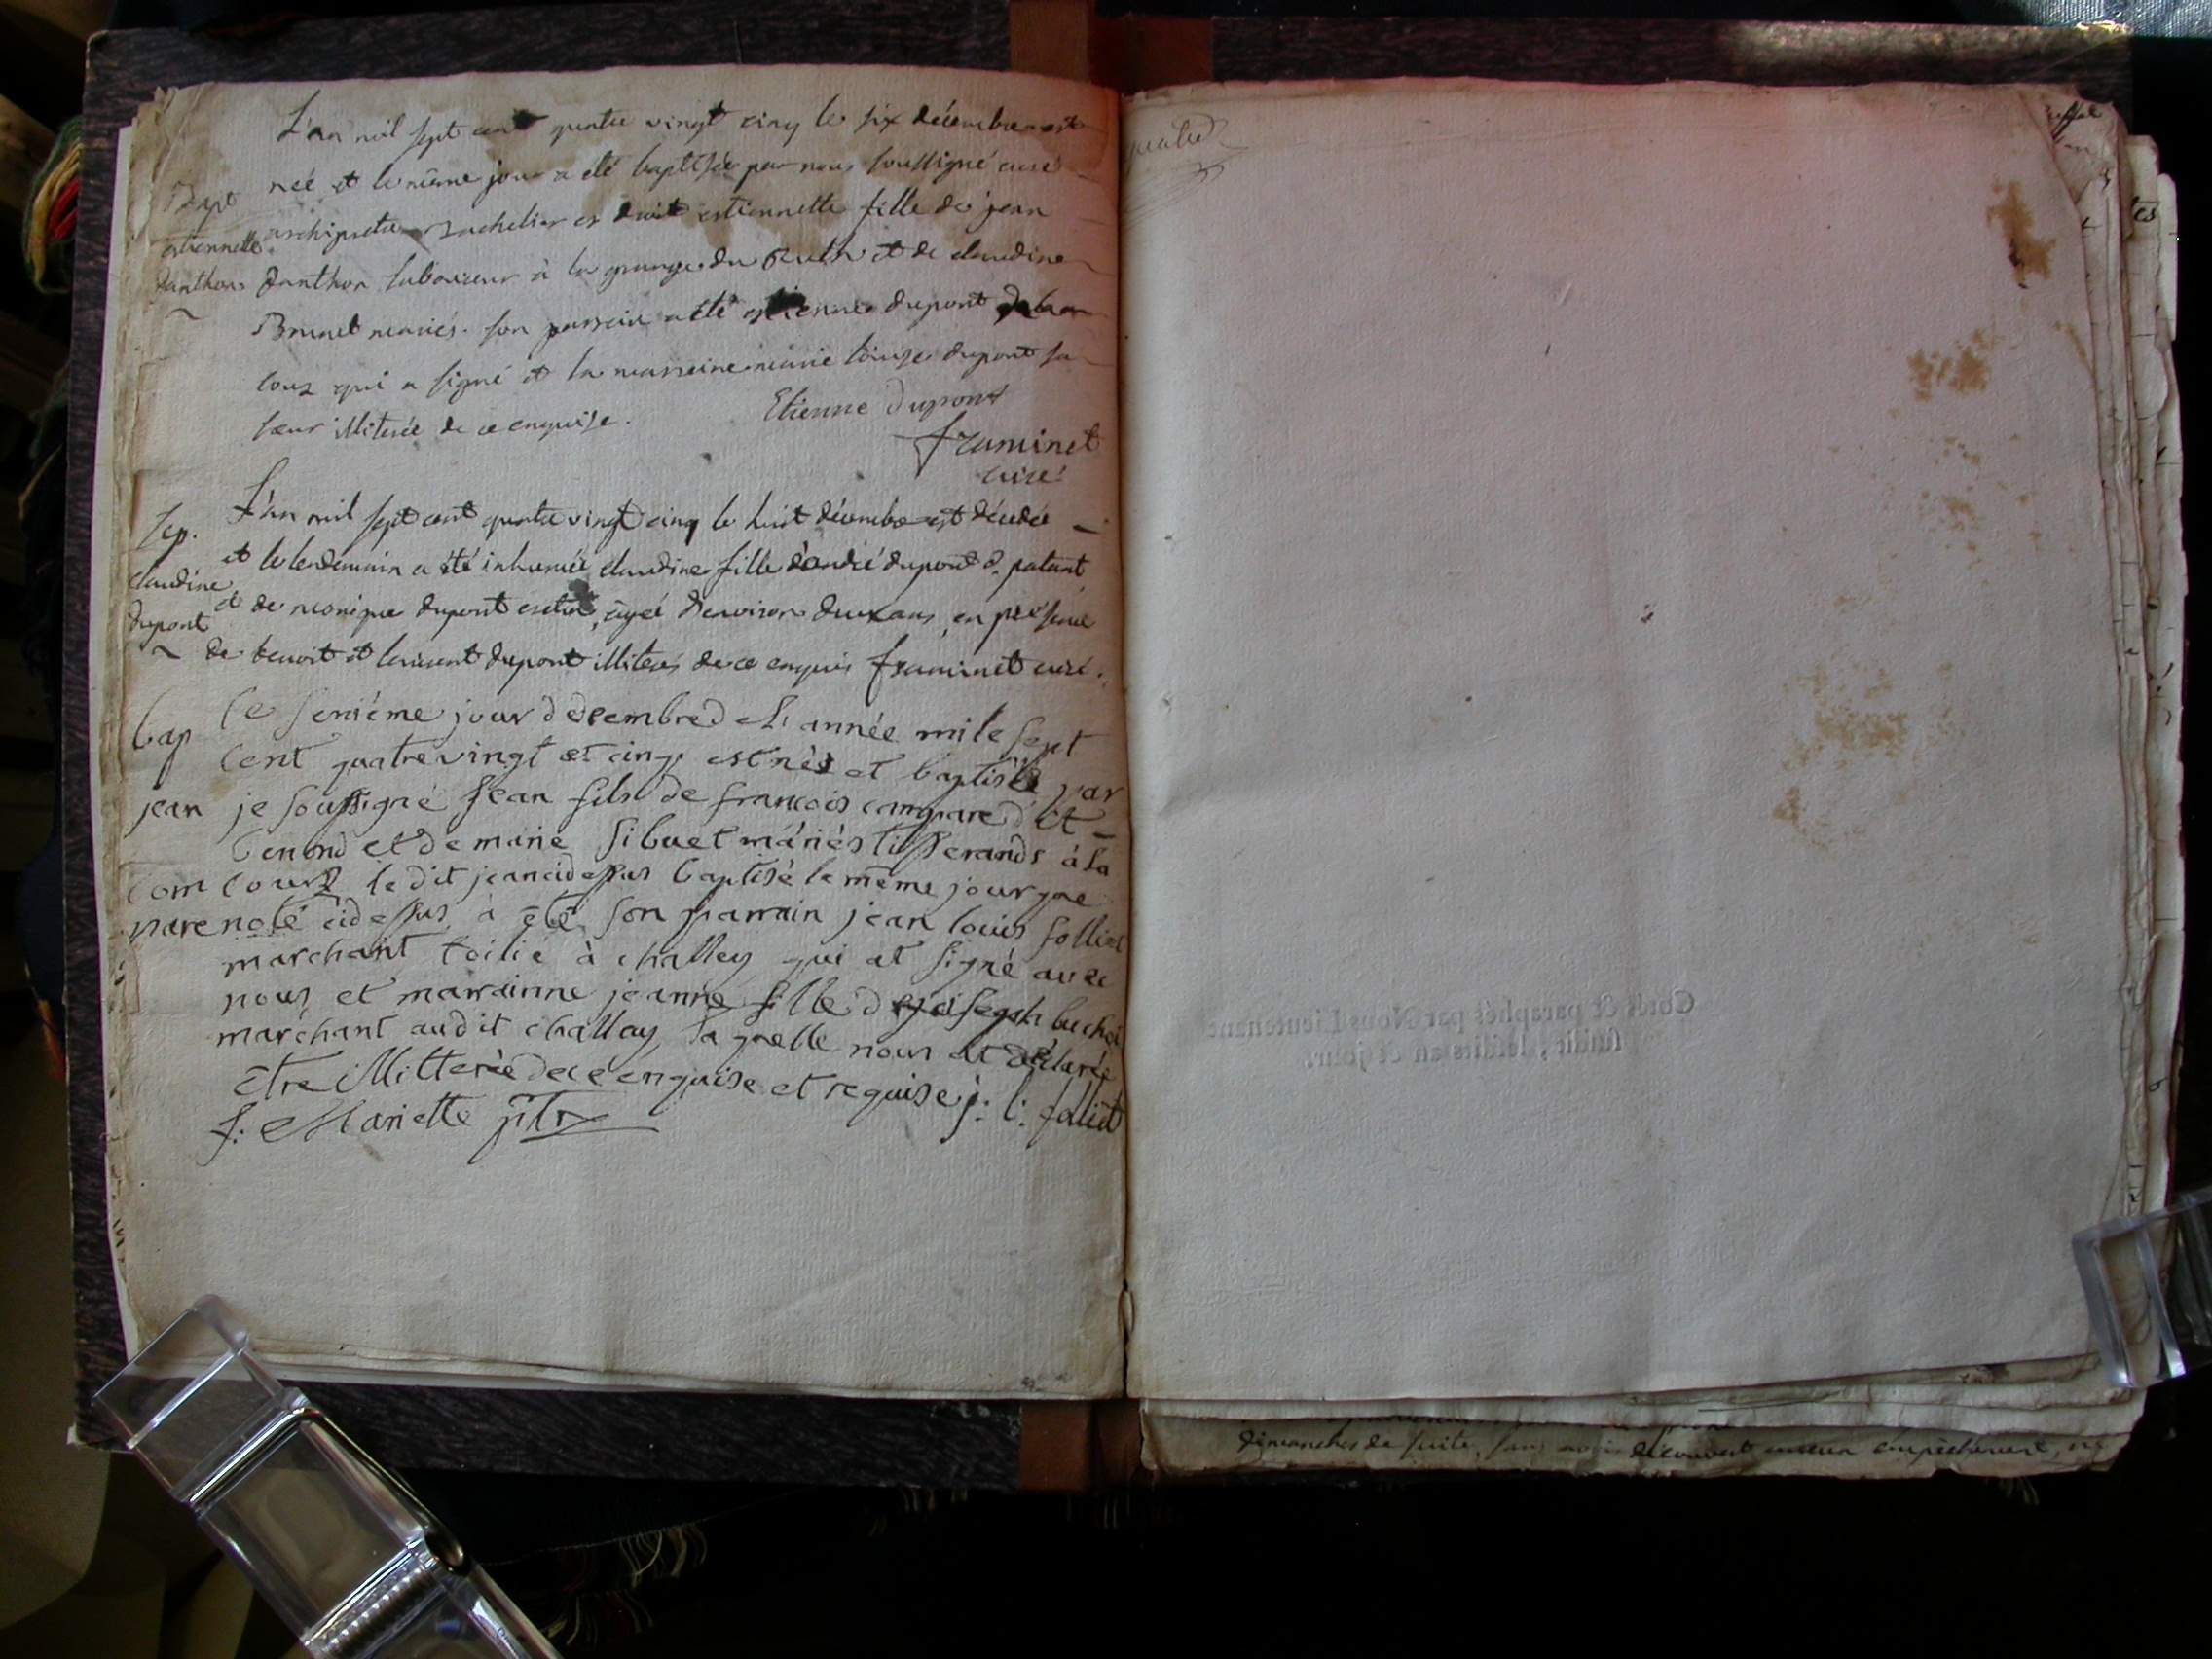 L'an mil sept cent quatre vingt cinq le six décembre est
née et le même jour a été baptisée par nous soussigné curé
Bapt
archiprêtre Bachelier es droit estiennette fille de jean
estiennette
Janthon laboureur à la grange du et de claudine
Janthon
Brunet mariés. son parrain a été estienne dupont
qui a signé et la marreine marie louise dupont sa
sœur illiterée de ce enquise.
Etienne dupont
framinet
curé
L'an mil sept cent quatre vingt cinq le huit décembre est décédée
Sep.
et le lendemain a été inhumée claudine fille d'andré dupont d.
claudine
et de monique dupont agée d'environ deux ans, en présence
dupont
de benoit et laurent dupont illiterés de ce enquis framinet curé.
bap
le jour dedecembre de l'année mile sept
cent quatre vingt et cinq est nés et baptisé par
jean
je soussigné jean fils de francois compare et
benond et de marie sibuet mariés tisserands à la
com
cour le dit jean cidessus baptisé le même jour que
pare
noté cidessus à été son parrain jean louis folliet
marchant toilié à challey qui at signé avec
nous et marrainne jeanne fille de joseph
marchant audit challay la quelle nous at déclarée
être illitterée de cé enquise et requise j: l: foliet
f: Mariette ptr
Cotés & paraphés par Nous Lieutenant
susdit, lesdits an et jour.
dimanches de suite, sans avoir découvert aucun empêchement,